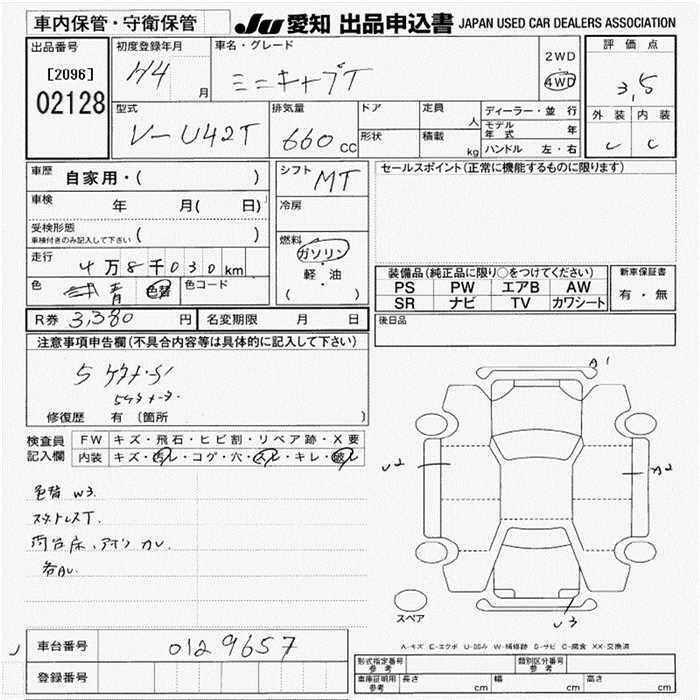 車内保管・守衛保管
JU 愛知 出品申込書 JAPAN USED CAR DEALERS ASSOCIATION
出品番号 初度登録年月 車名・グレード 評価点
[2096] H4 月 ミニキャブT 2WD 4WD 3,5
02128
型式 排気量 ドア 定員 ディーラー・並行 外装 内装
V-U42T 660cc 人 モデル年式 年 C C
形状 積載 kg ハンドル 左・右
車歴 自家用・( ) シフト MT セールスポイント(正常に機能するものに限ります)
車検 年 月( 日) 冷房
受検形態 ( )
車検付きのみ記入して下さい
走行 4万8千030km 燃料 ガソリン
軽・油
( )
色 青 色替 色コード
装備品(純正品に限り○をつけてください) 新車保証書
PS PW エアB AW 有・無
SR ナビ TV カワシート
R券 3,380円 名変期限 月 日 後日品
注意事項申告欄(不具合内容等は具体的に記入して下さい)
修復歴 有 〔箇所 〕
検査員 FW キズ・飛石・ヒビ割・リペア跡・X要
記入欄 内装 キズ・汚レ・コゲ・穴・スレ・キレ・破レ
色替 W3
スタットレスT.
荷台床、アオリ カレ.
各AU.
A1
U2
A2
U3
スペア
A-キズ E-エクボ U-凹み W-補修跡 S-サビ C-腐食 XX-交換済
車台番号 0129657
登録番号
形式指定番号 参考 類別区分番号 参考
車庫証明用 参考 長さ cm 幅 cm 高さ cm